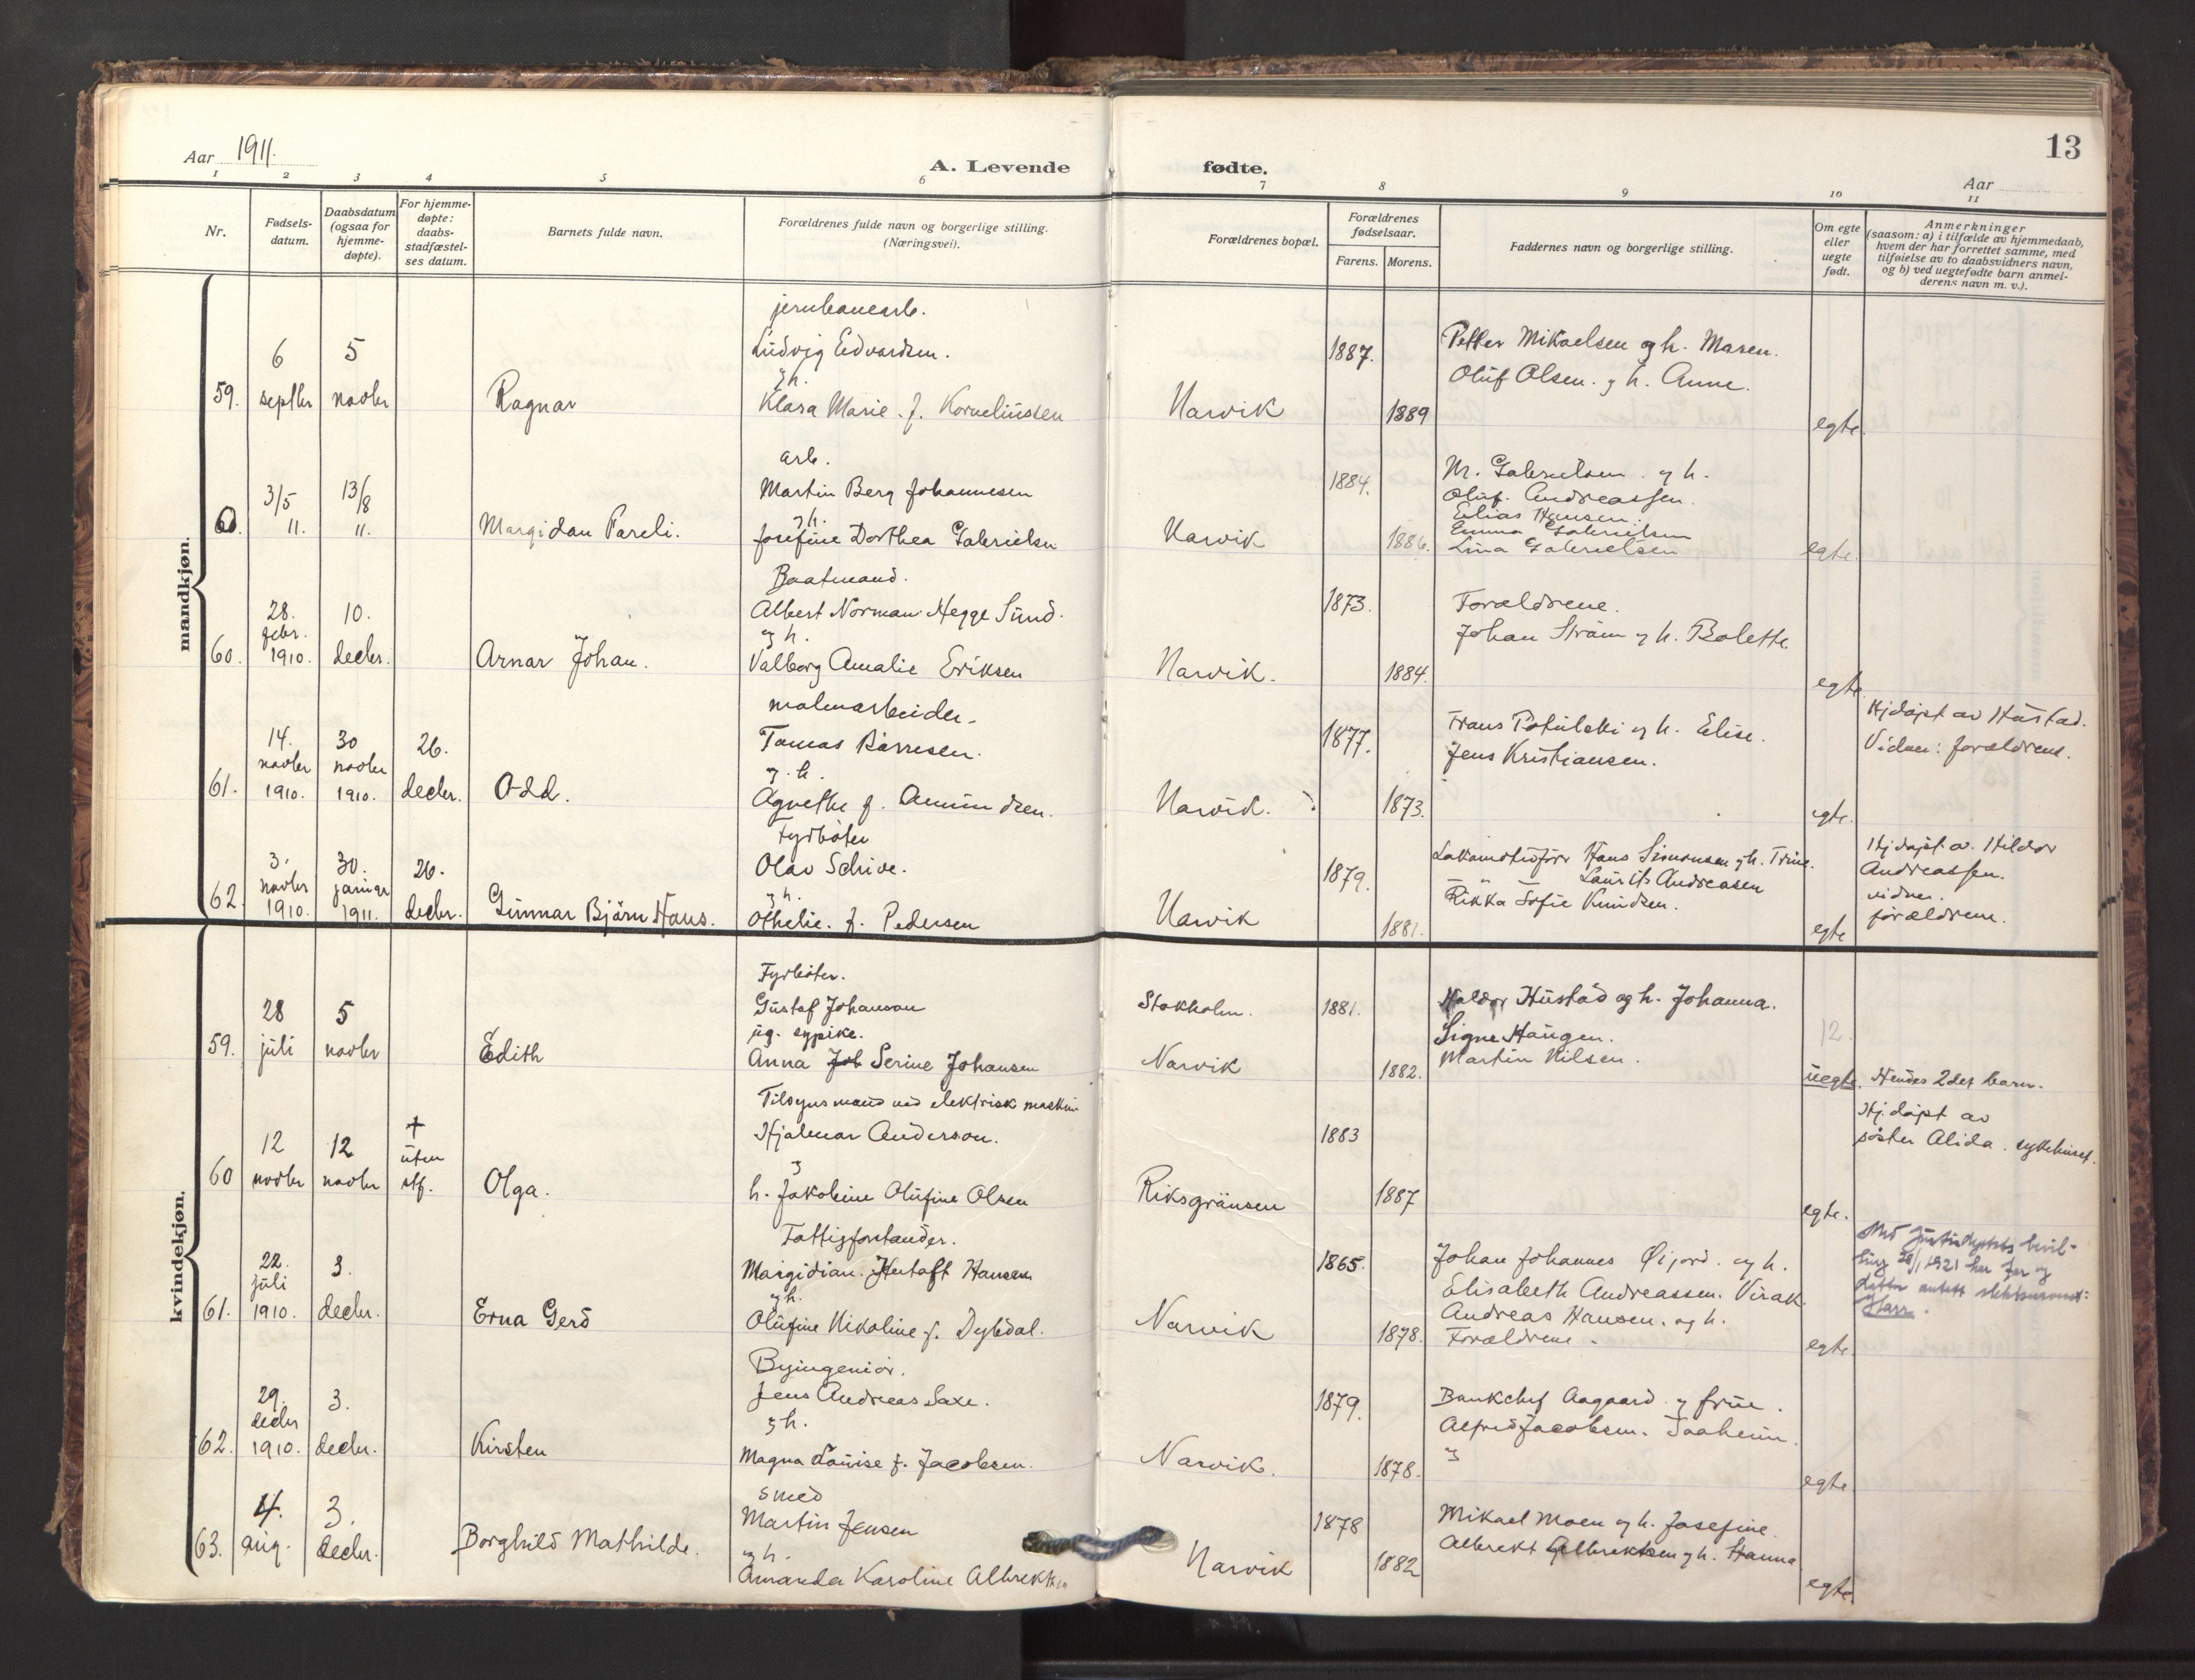 13
Aar 1911.
A. Levende fødte.
Aar
1 2 3 4 5 6 7 8 9 10 11
Nr.
Fødsels-
datum.
Daabsdatum
(ogsaa for
hjemme-
døpte).
For hjemme-
døpte:
daabs-
stadfæstel-
ses datum.
Barnets fulde navn.
Forældrenes fulde navn og borgerlige stilling.
(Næringsvei).
Forældrenes bopæl.
Forældrenes
fødselsaar.
Farens. Morens.
Faddernes navn og borgerlige stilling.
Om egte
eller
uegte
født.
Anmerkninger
(saasom: a) i tilfælde av hjemmedaab,
hvem der har forrettet samme, med
tilføielse av to daabsvidners navn,
og b) ved uegtefødte barn anmel-
derens navn m. v.).
mandkjøn.
jernbanearb.
6 5 Ludvig Edvardsen. 1887. Petter Mikaelsen og h. Maren.
og h. Oluf Olsen. og h. Anne.
59. septbr novbr Ragnar Klara Marie. f. Korneliussen Narvik 1889 egte.
arb.
3/5 13/8 Martin Berg Johannesen 1884. M. Gabrielsen. og h.
Oluf. Andreassen.
og h. Elias Hansen.
60. 11. 11. Margidan Pareli. Josefine Dorthea Gabrielsen Narvik 1886. Emma Gabrielsen egte.
Lina Gabrielsen
Baatmand.
28. 10. Albert Norman Hegge Sund. 1873. Forældrene.
febr. og h. Johan Ström og h. Bolette.
60. 1910. decbr. Arnar Johan. Valborg Amalie Eriksen Narvik. 1884. egte
malmarbeider.
14. 30 26. Tomas Börresen. 1877. Frans Potulski og h. Elise. Hjdöpt av Hustad.
novbr novbr og h. Jens Kristiansen. Vidner: forældrene.
61. 1910. 1910. decbr. Odd. Agnethe f. Amundsen. Narvik. 1873. egte.
Fyrböter
3. 30. 26. Olav Schive. 1879. Lokomotivförer Hans Simonsen og h. Trine. Hjdöpt a. Hildor
novbr januar og h. Laurits Andreasen Andreassen.
62. 1910. 1911. decbr. Gunnar Björn Hans. Othelie. f. Pedersen Narvik 1881. Rikka Sofie Knudsen. egte vidner.
forældrene.
kvindekjøn.
Fyrböter.
28 5 Gustaf Johanson Stokholm. 1881. Haldor Hustad og h. Johanna.
ug. sypike. Signe Haugen. 12.
59. juli novbr Edith Anna Joh Serine Johansen Narvik 1882. Martin Nilsen. uegte. Hendes 2det barn.
Tilsynsmand ved elektrisk maskin
12 12 † Hjalmar Anderson. 1883 Hj.döpt av
uten og söster Alida. sykehuset.
60 novbr novbr stf. Olga. h. Jakobine Olufine Olsen Riksgränsen 1887 egte.
Fattigforstander.
22. 3. Margidian. Hertoft Hansen 1865. Johan Johannes Öijord. og h. Med Justisdeptets bevil-
juli og h. Elisabeth Andreassen. Virak. ling 28/1 1921 har far og
61. 1910. decbr. Erna Gerd Olufine Nikoline f. Dybdal. Narvik 1878. Andreas Hansen. og h. egte. datter antatt slektsnavnet:
Forældrene. Harr.
Byingeniör.
29. 3. Jens Andreas Saxe. 1879. Bankchef Aagaard og frue.
decbr og h. Alfred Jacobsen. Taaheim.
62. 1910. decbr. Kirsten Magna Louise f. Jacobsen. Narvik. 1878. og egte
smed
4. 3. Martin Jensen 1878 Mikael Moen og h. Josefine.
og h. Albrekt Albrektsen og h. Hanna
63. aug. decbr. Borghild Mathilde. Amanda Karoline Albrektsen Narvik 1882 egte.